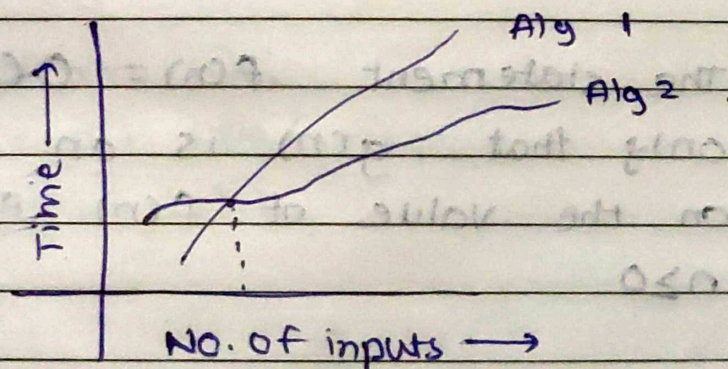 Alg 1
Alg 2
Time
No. of inputs